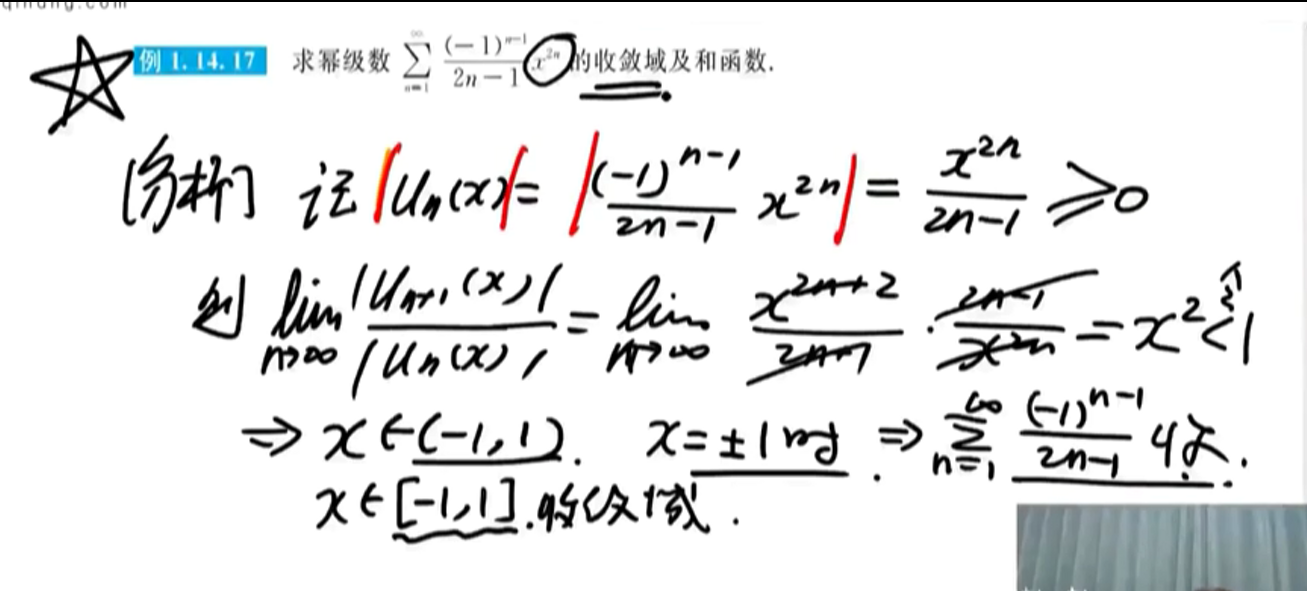 qihang.com
例 1.14.17 求幂级数 $\sum_{n=1}^{\infty} \frac{(-1)^{n-1}}{2n-1} x^{2n}$ 的收敛域及和函数.
[分析] 记 $|u_n(x)| = \left|\frac{(-1)^{n-1}}{2n-1} x^{2n}\right| = \frac{x^{2n}}{2n-1} \geqslant 0$
则 $\lim_{n\to\infty} \frac{|u_{n+1}(x)|}{|u_n(x)|} = \lim_{n\to\infty} \frac{x^{2n+2}}{2n+1} \cdot \frac{2n-1}{x^{2n}} = x^2 \overset{令}{<} 1$
$\Rightarrow x \in (-1,1)$. $x = \pm 1$ 时. $\Rightarrow \sum_{n=1}^{\infty} \frac{(-1)^{n-1}}{2n-1}$ 收敛.
$x \in [-1,1]$. 收敛域.